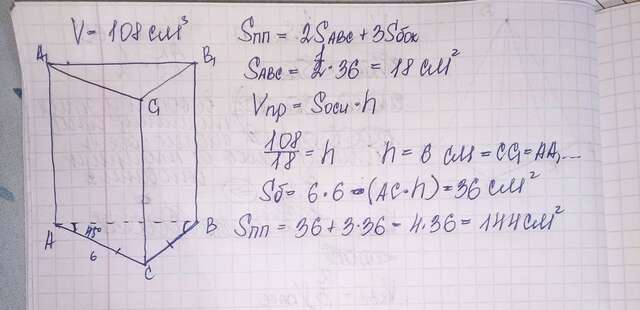 V = 108 см³
A₁
B₁
C₁
A
45°
B
6
C
Sпп = 2SABC + 3Sбок
SABC = 1/2 · 36 = 18 см²
Vпр = Sосн · h
108/18 = h h = 6 см = CC₁ = AA₁...
Sб = 6 · 6 = (AC · h) = 36 см²
Sпп = 36 + 3 · 36 = 4 · 36 = 144 см²